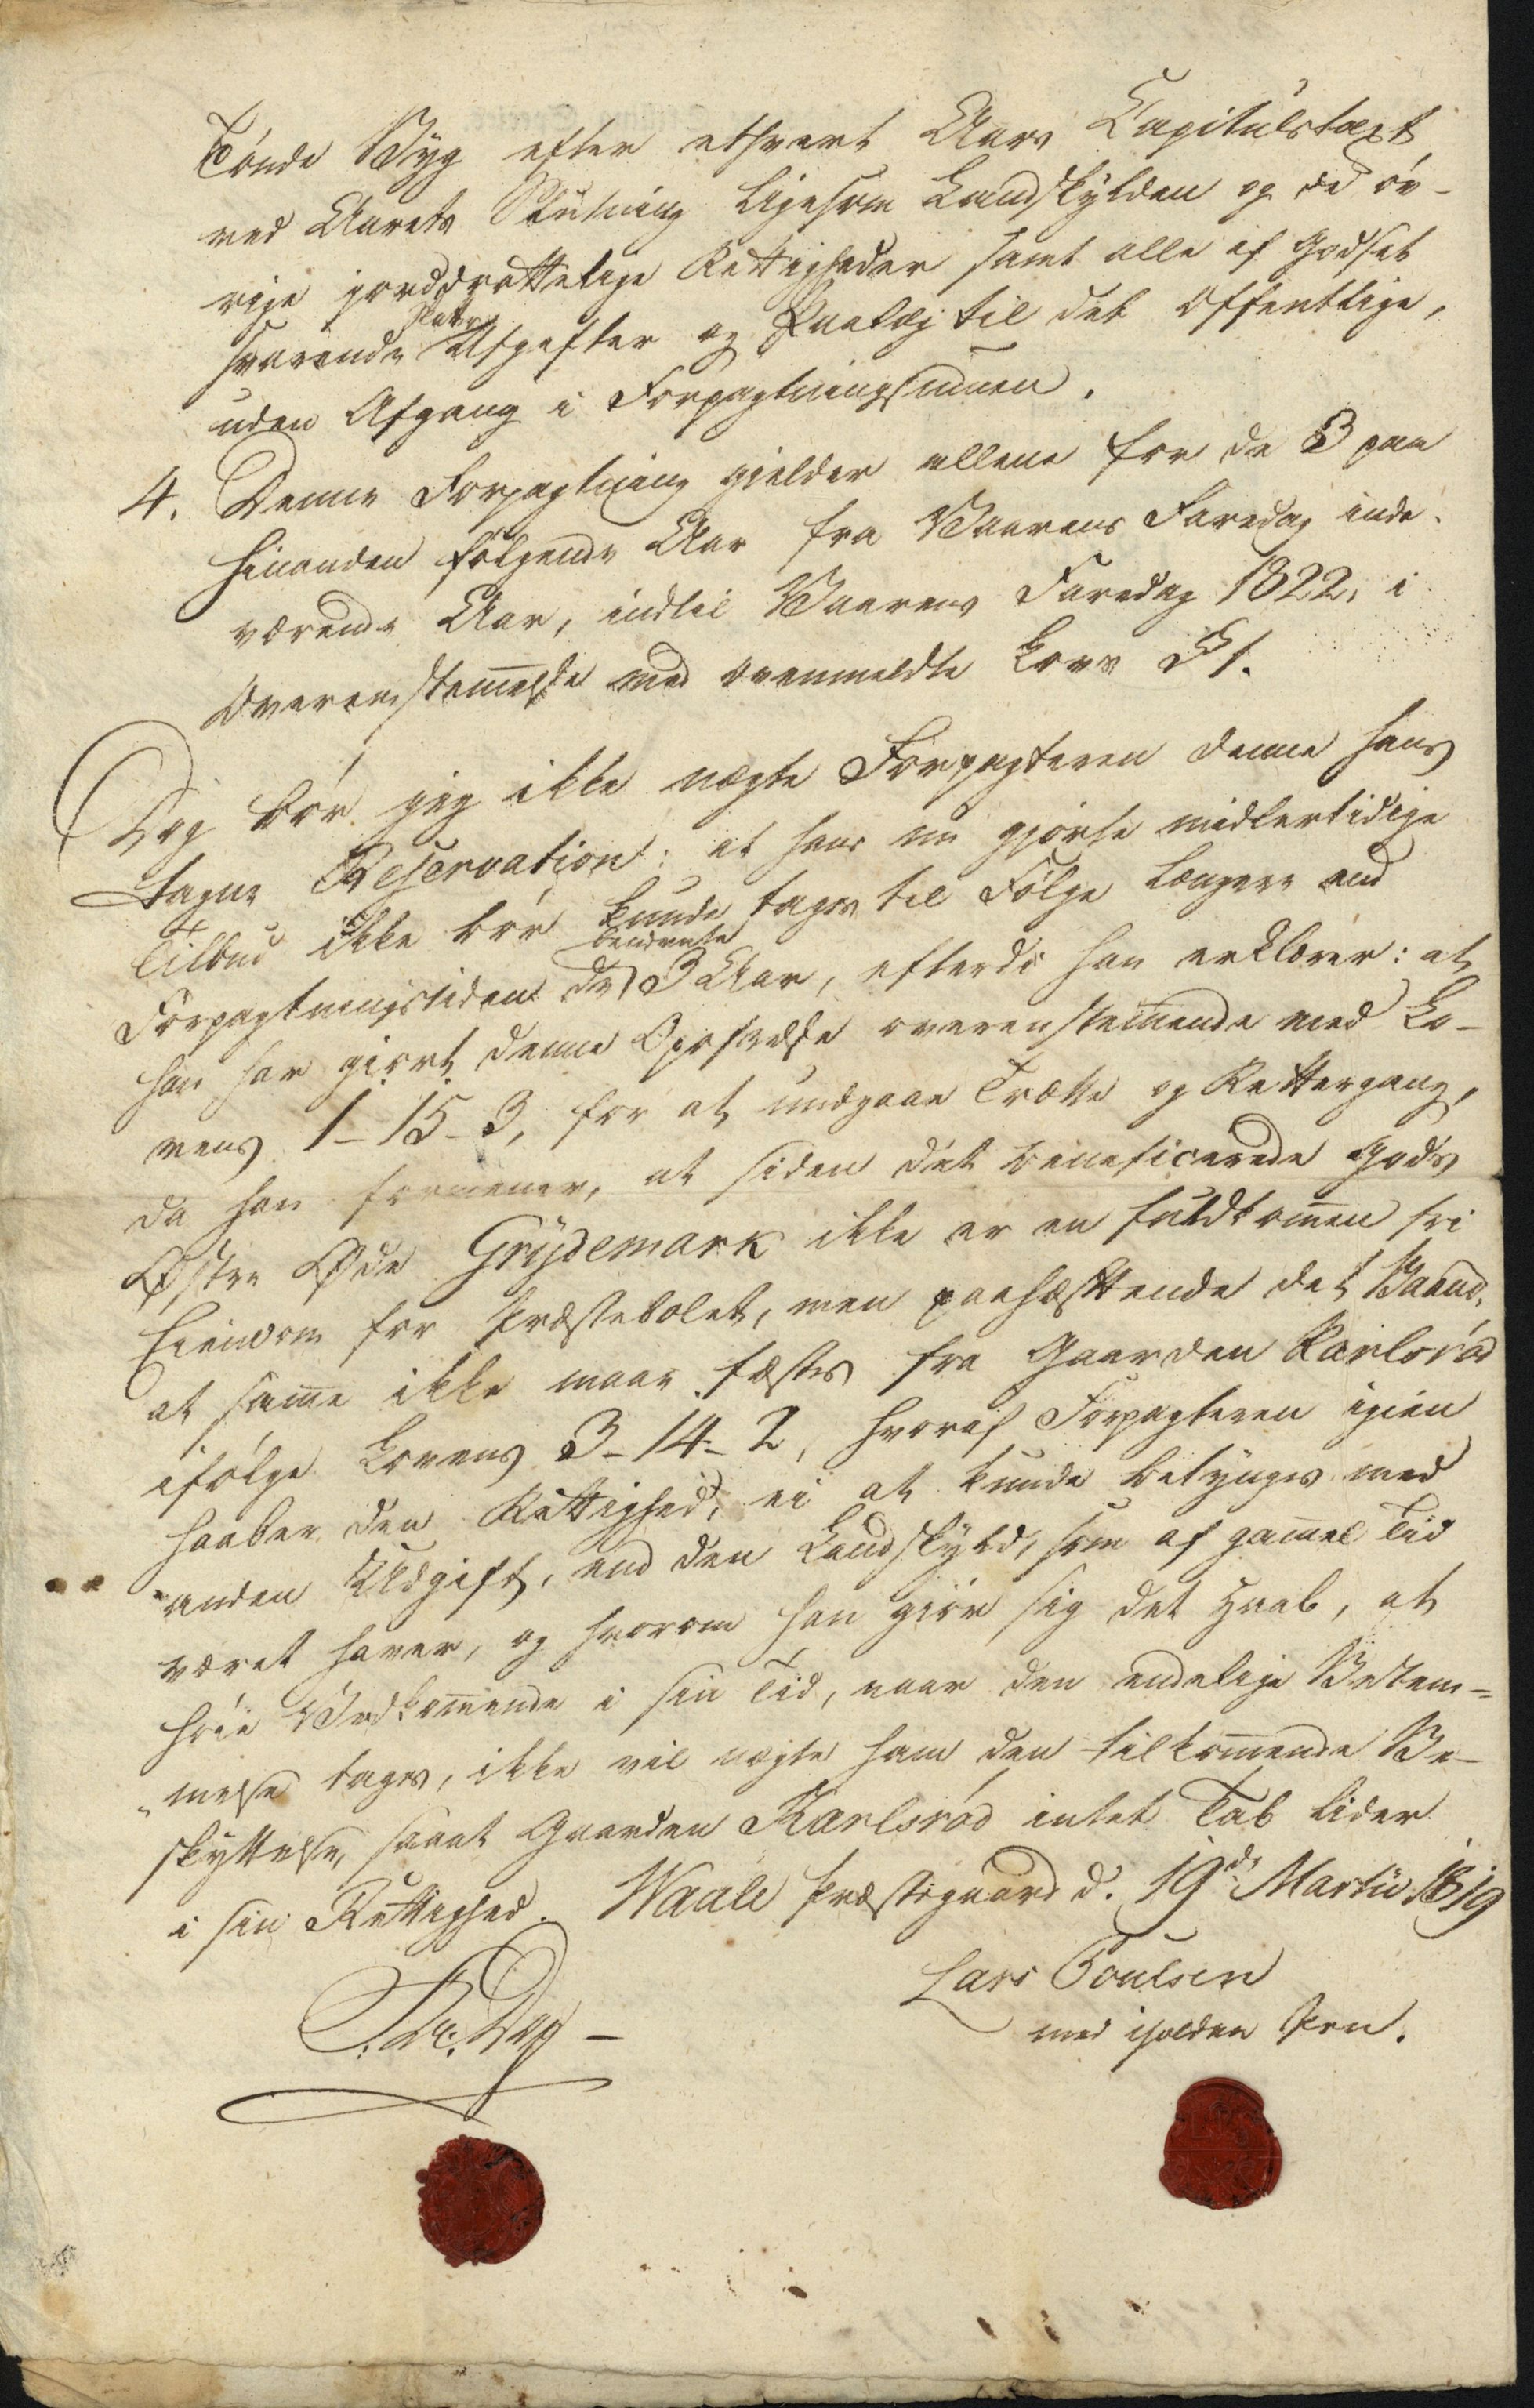 Tönde Byg efter ethvert Aars Capitulstaxt
ved Aarets Slutning ligesom Landskylden og de öv-
rige jorddrottelige Rettigheder samt alle af Godset
svarende Skatter Afgifter og Paalæg til det Offentlige,
uden Afgang i Forpagtningssummen.
4. Denne Forpagtning gielder allene for de 3 paa
hinanden fölgende Aar fra Vaarens Faredag inde-
værende Aar, indtil Vaarens Faredag 1822, i
Overensstemmelse med ovenmeldte Lovs § 1.
Dog bör jeg ikke nægte Forpagteren denne hans
tagne Reservation: at hans nu gjorte midlertidige
Tilbud ikke bör kunde tages til Fölge længere end
Forpagtningstiden de benævnte 3 Aar, efterdi han erklærer: at
han har giort denne Opofrelse overensstemmende med Lo-
vens 1-15-3, for at undgaae Trætte og Rettergang,
da han formener, at siden det beneficerede Gods
Östre Öde Grydemark ikke er en fuldkommen fri
Eiendom for Præstebolet, men paahæftende det Baand,
at samme ikke maae fæstes fra Gaarden Karlsröd
ifölge Lovens 3-14-2, hvoraf Forpagteren igien
haaber den Rettighed, ei at kunde betynges med
anden Udgift, end den Landskyld, som af gammel Tid
været haver, og hvorom han giör sig det Haab, at
höie Vedkommende i sin Tid, naar den endelige Bestem-
melse tages, ikke vil nægte ham den tilkommende Be-
skyttelse, saaat Gaarden Karlsröd intet Tab lider
i sin Rettighed. Waale Præstegaard d. 19de Martii 1819
Lars Poulsen
med iholden Pen.